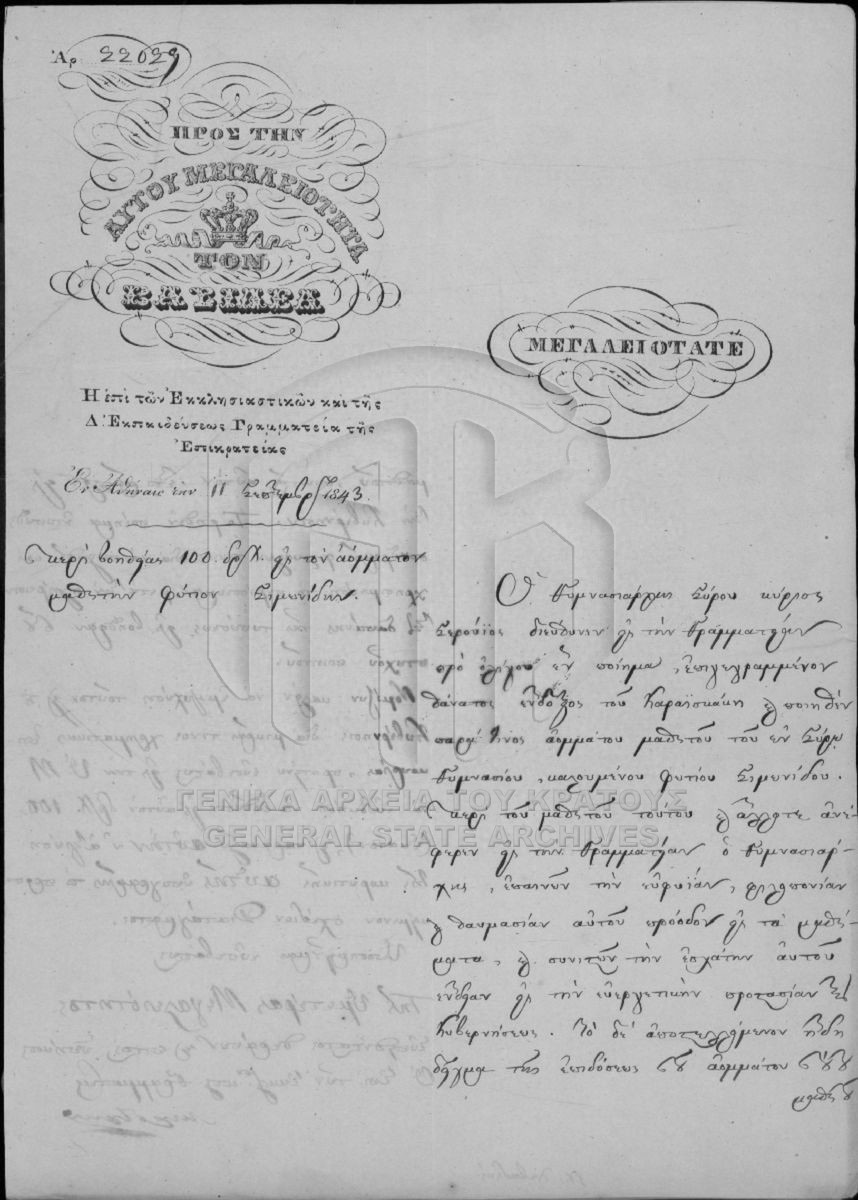 Ἀρ 22029
ΠΡΟΣ ΤΗΝ
ΑΥΤΟΥ ΜΕΓΑΛΕΙΟΤΗΤΑ
ΤΟΝ
ΒΑΣΙΛΕΑ
ΜΕΓΑΛΕΙΟΤΑΤΕ
Η ἐπὶ τῶν Ἐκκλησιαστικῶν καὶ τῆς
Δ. Ἐκπαιδεύσεως Γραμματεία τῆς
Ἐπικρατείας
Ἐν Ἀθήναις τὴν 11 Σεπτεμβρ 1843.
Περὶ βοηθείας 100 δρχ. εἰς τὸν ἀόμματον
μαθητὴν Φώτιον Σιμωνίδην.
Ὁ Γυμνασιάρχης Σύρου κύριος
Σερούϊος διεύθυνεν εἰς τὴν Γραμματείαν
πρὸ ὀλίγου ἓν ποίημα, ἐπιγεγραμμένον
θάνατος ἔνδοξος τοῦ Καραϊσκάκη καὶ ποιηθὲν
παρά τινος ἀομμάτου μαθητοῦ τοῦ ἐν Σύρῳ
Γυμνασίου, καλουμένου Φωτίου Σιμωνίδου.
Περὶ τοῦ μαθητοῦ τούτου καὶ ἄλλοτε ἀνέ-
φερεν εἰς τὴν Γραμματείαν ὁ Γυμνασιάρ-
χης, ἐπαινῶν τὴν εὐφυΐαν, φιλοπονίαν
καὶ θαυμασίαν αὐτοῦ πρόοδον εἰς τὰ μαθή-
ματα, καὶ συνιστῶν τὴν ἐσχάτην αὐτοῦ
ἔνδειαν εἰς τὴν εὐεργετικὴν προστασίαν τῆς
Κυβερνήσεως. Τὸ δὲ ἀποστελλόμενον ἤδη
δεῖγμα τῆς ἐπιδόσεως τοῦ ἀομμάτου τούτου
μαθητοῦ
ΓΕΝΙΚΑ ΑΡΧΕΙΑ ΤΟΥ ΚΡΑΤΟΥΣ
GENERAL STATE ARCHIVES